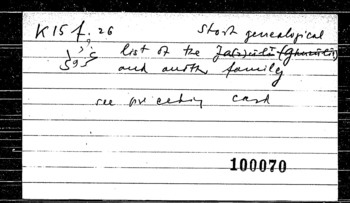 K 15 f. 26 Short genealogical
list of the
and another family
see preceding card
100070